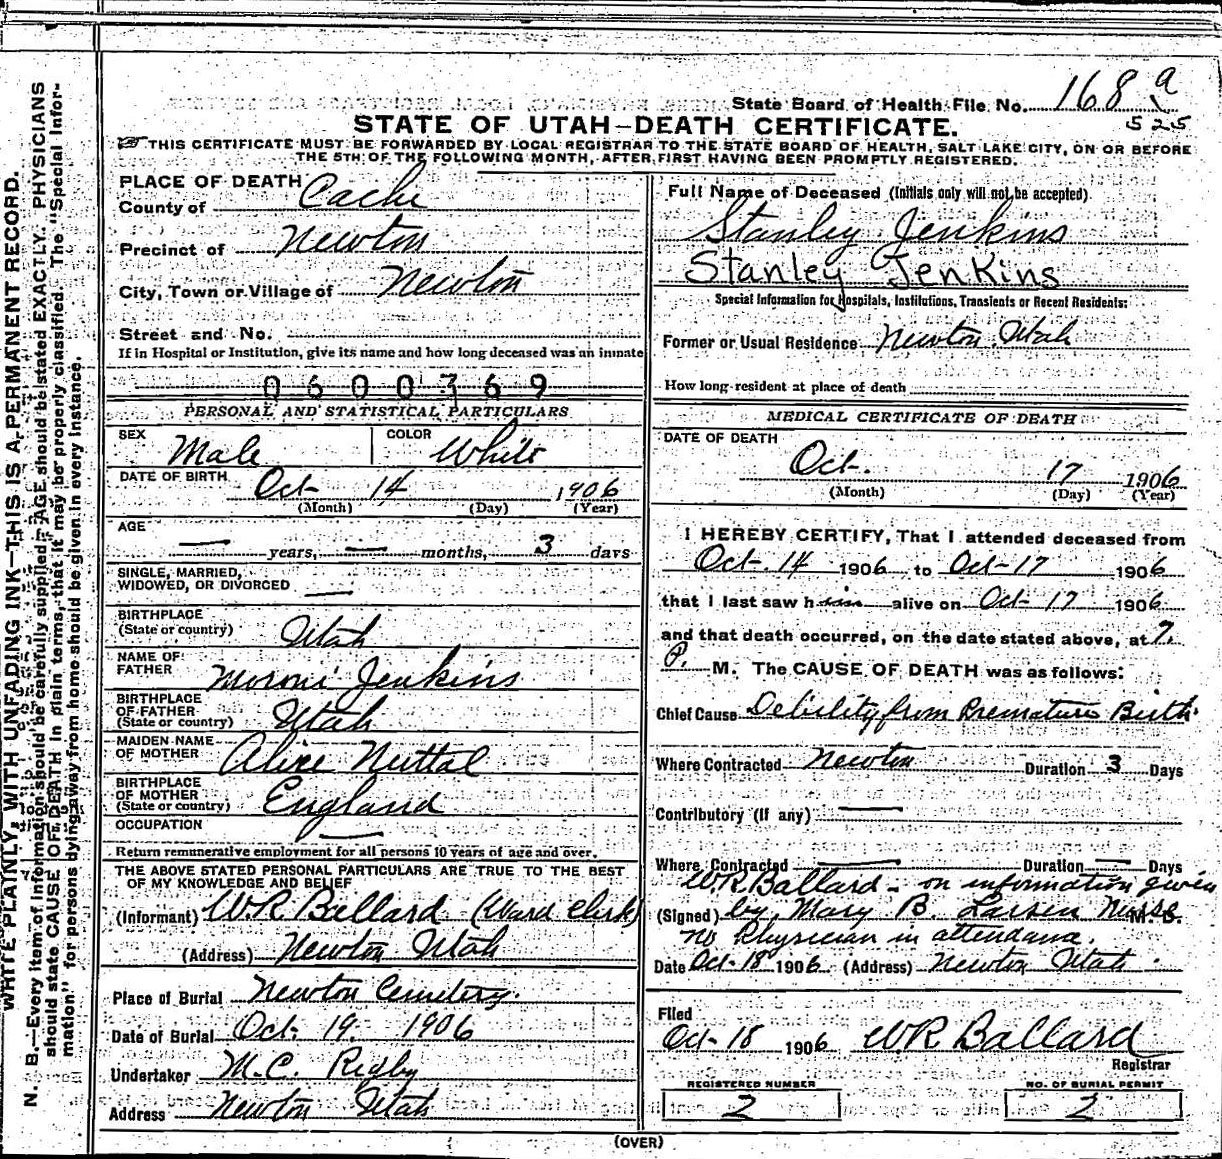 State Board of Health File No. 168 a
525
STATE OF UTAH—DEATH CERTIFICATE.
THIS CERTIFICATE MUST BE FORWARDED BY LOCAL REGISTRAR TO THE STATE BOARD OF HEALTH, SALT LAKE CITY, ON OR BEFORE
THE 5TH OF THE FOLLOWING MONTH, AFTER FIRST HAVING BEEN PROMPTLY REGISTERED.
WRITE PLAINLY, WITH UNFADING INK—THIS IS A PERMANENT RECORD.
N. B.—Every item of information should be carefully supplied. AGE should be stated EXACTLY. PHYSICIANS
should state CAUSE OF DEATH in plain terms, that it may be properly classified. The "Special Infor-
mation" for persons dying away from home should be given in every instance.
PLACE OF DEATH
County of Cache
Precinct of Newton
City, Town or Village of Newton
Street and No.
If in Hospital or Institution, give its name and how long deceased was an inmate
0600369
PERSONAL AND STATISTICAL PARTICULARS
SEX Male COLOR White
DATE OF BIRTH Oct- 14 1906
(Month) (Day) (Year)
AGE
— years, — months, 3 days
SINGLE, MARRIED,
WIDOWED, OR DIVORCED —
BIRTHPLACE
(State or country) Utah
NAME OF
FATHER Moroni Jenkins
BIRTHPLACE
OF FATHER
(State or country) Utah
MAIDEN NAME
OF MOTHER Alice Nuttal
BIRTHPLACE
OF MOTHER
(State or country) England
OCCUPATION —
Return remunerative employment for all persons 10 years of age and over.
THE ABOVE STATED PERSONAL PARTICULARS ARE TRUE TO THE BEST
OF MY KNOWLEDGE AND BELIEF
(Informant) W.R. Ballard (Ward Clerk)
(Address) Newton Utah
Place of Burial Newton Cemetery.
Date of Burial Oct. 19. 1906
Undertaker M.C. Rigby
Address Newton Utah
Full Name of Deceased (Initials only will not be accepted)
Stanley Jenkins
Stanley Jenkins
Special Information for Hospitals, Institutions, Transients or Recent Residents:
Former or Usual Residence Newton, Utah
How long resident at place of death
MEDICAL CERTIFICATE OF DEATH
DATE OF DEATH
Oct. 17 1906
(Month) (Day) (Year)
I HEREBY CERTIFY, That I attended deceased from
Oct-14 1906 to Oct-17 1906
that I last saw him alive on Oct-17 1906
and that death occurred, on the date stated above, at 7.
P. M. The CAUSE OF DEATH was as follows:
Chief Cause Debility from Premature Birth
Where Contracted Newton Duration 3 Days
Contributory (If any) —
Where Contracted — Duration — Days
W.R. Ballard - on information given
(Signed) by Mary B. Larsen Nurse M. D.
no Physician in attendance.
Date Oct-18 1906 (Address) Newton Utah
Filed
Oct-18 1906 W.R. Ballard
Registrar
REGISTERED NUMBER
2
NO. OF BURIAL PERMIT
2
(OVER)